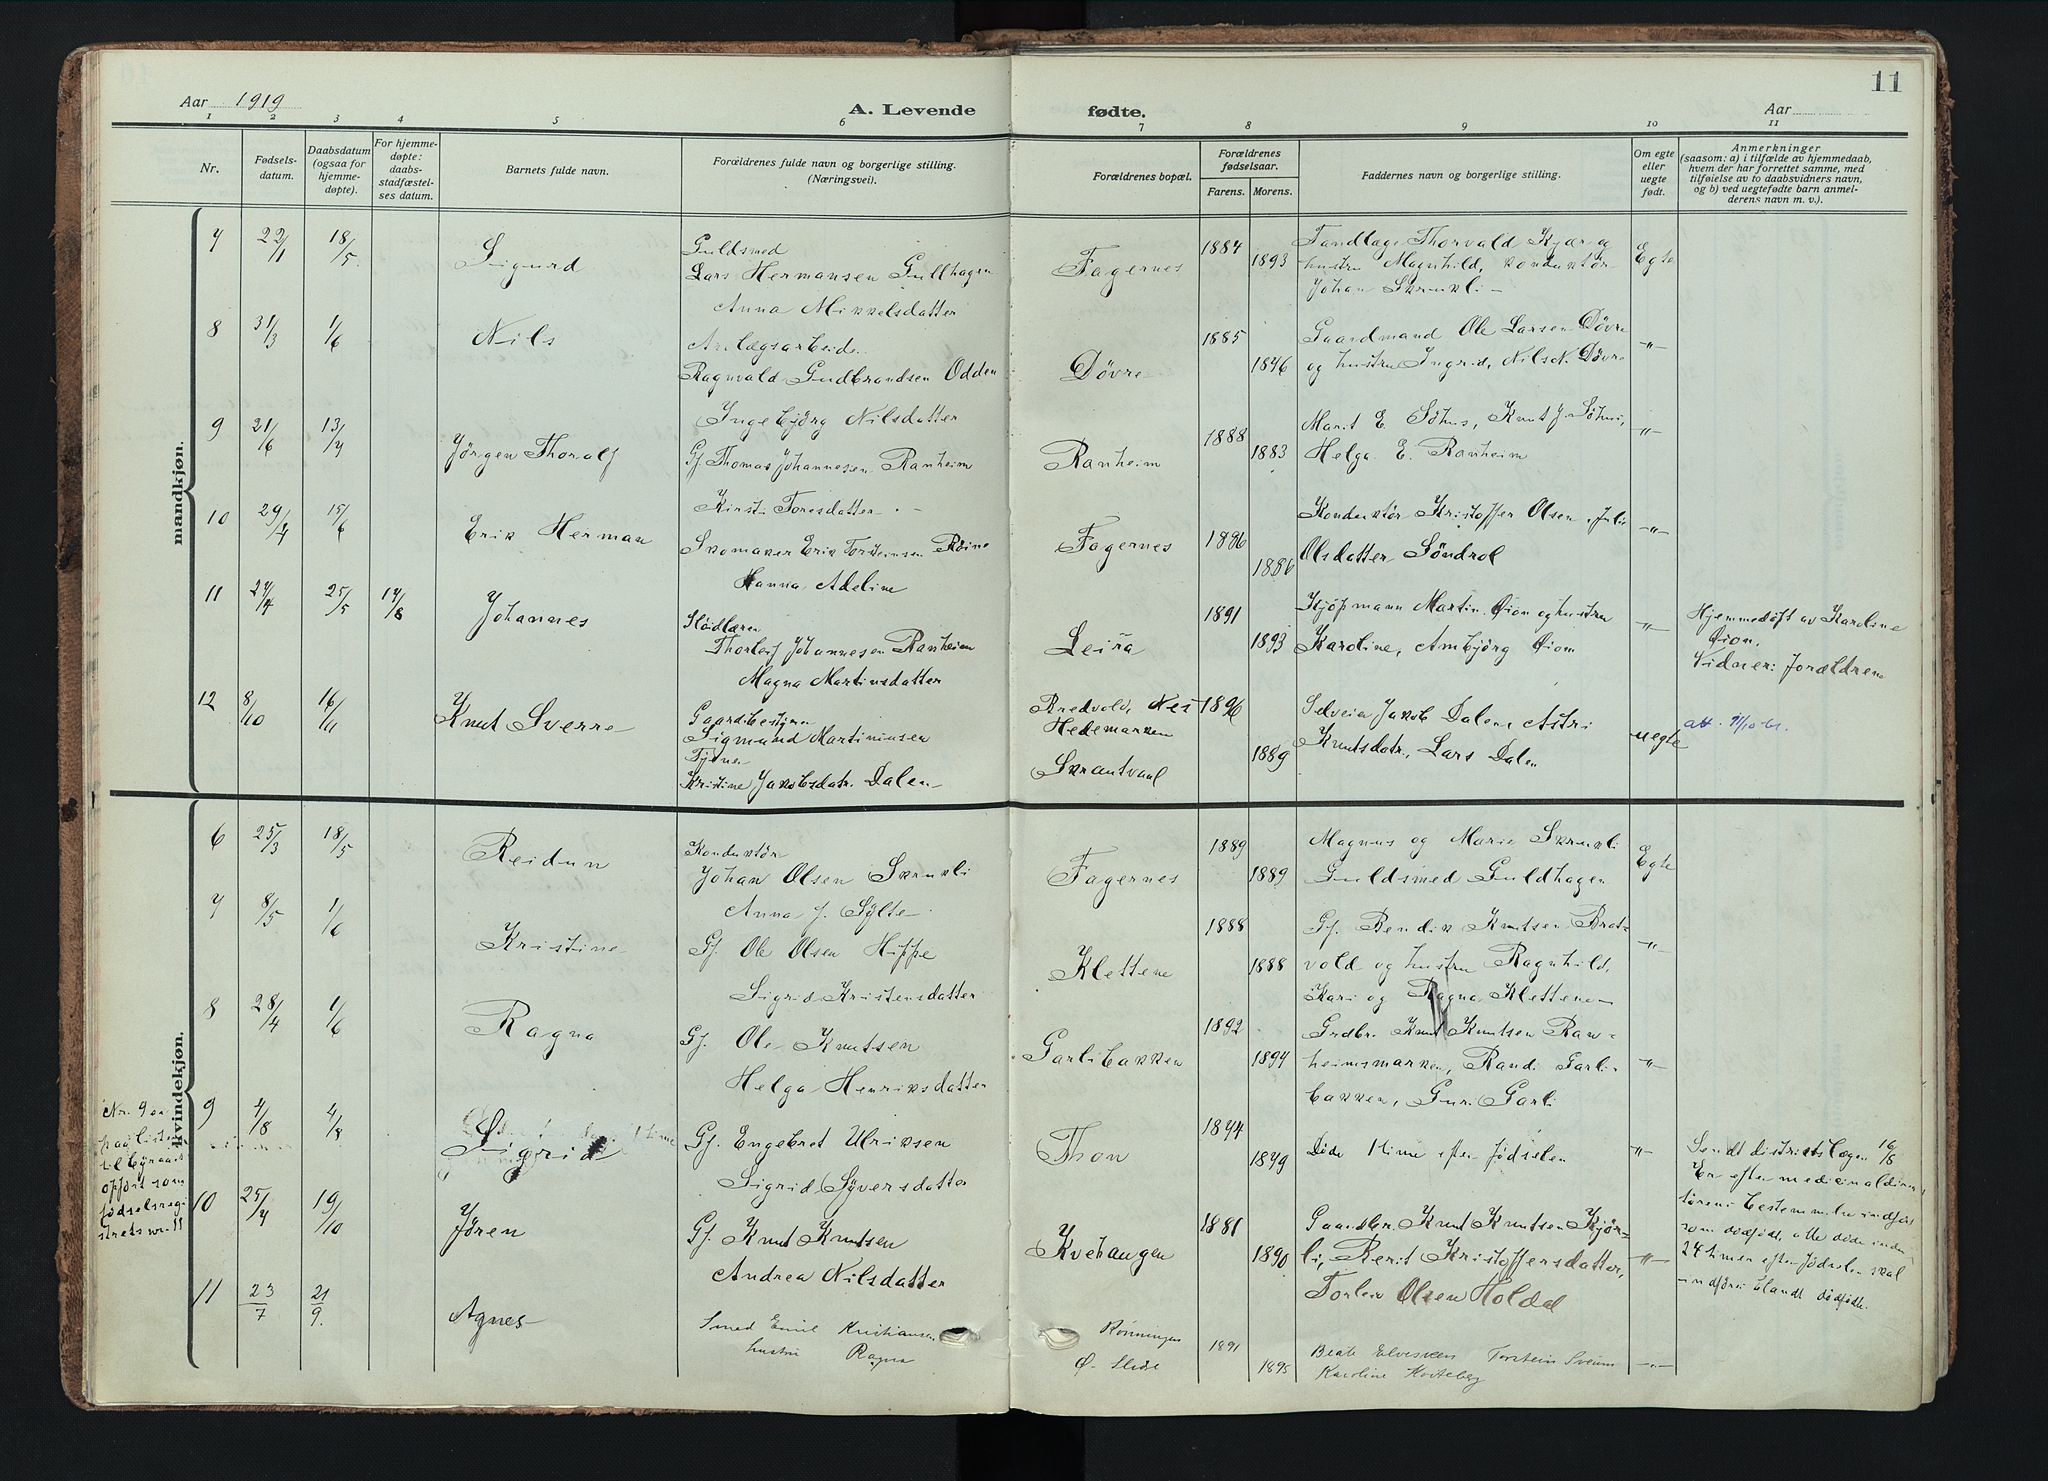 11
Aar 1919
A. Levende fødte.
Aar
1 2 3 4 5 6 7 8 9 10 11
Nr.
Fødsels-
datum.
Daabsdatum
(ogsaa for
hjemme-
døpte).
For hjemme-
døpte:
daabs-
stadfæstel-
ses datum.
Barnets fulde navn.
Forældrenes fulde navn og borgerlige stilling.
(Næringsvei).
Forældrenes bopæl.
Forældrenes
fødselsaar.
Farens. Morens.
Faddernes navn og borgerlige stilling.
Om egte
eller
uegte
født.
Anmerkninger
(saasom: a) i tilfælde av hjemmedaab,
hvem der har forrettet samme, med
tilføielse av to daabsvidners navn,
og b) ved uegtefødte barn anmel-
derens navn m. v.).
mandkjøn.
7 22/1 18/5 Sigurd
Guldsmed
Lars Hermansen Gullhagen
Anna Mikkelsdatter
Fagernes 1884 1893
Tandlæge Thorvald Kjær og
hustru Magnhild, konduktør
Johan Skrukli
Egte
8 31/3 1/6 Nils
Anlægsarbeider
Ragnvald Gudbrandsen Odden
Ingebjörg Nilsdatter
Døvre 1885 1896
Gaardmand Ole Larsen Døvre
og hustru Ingrid, Nils N. Døvre
-"-
9 21/6 13/7 Jörgen Thoralf
Gf Thomas Johannesen Ranheim
Kirsti Toresdatter
Ranheim 1888 1883
Marit E. Söhus, Knut J. Söhus,
Helga E. Ranheim
-"-
10 29/4 15/6 Erik Herman
Skomaker Erik Torsteinsen Röine
Hanna Adeline
Fagernes 1886 1886
Konduktör Kristoffer Olsen, Julie
Olsdatter Söndrol
-"-
11 27/4 25/5 17/8 Johannes
Thorleif Johannesen Ranheim
Magna Martinsdatter
Leira 1891 1893
Kjöpmann Martin Øion og hustru
Karoline, Ambjörg Øion
-"-
Hjemmedöpt av Karoline
Øion.
Vidner: Forældrene
12 8/10 16/11 Knut Sverre
Gaardbestyrer
Sigmund Martiniusen
Tjener
Kristine Jakobsdatr. Dalen
Bredvold, Nes
Hedemarken
Skrautvaal
1896 1889
Selveier Jakob Dalen, Astri
Knutsdatr., Lars Dalen
uegte
kvindekjøn.
6 25/3 18/5 Reidun
Konduktör
Johan Olsen Skrukli
Anna J. Sylte
Fagernes 1889 1889
Magnus og Marie Skrukli
Guldsmed Guldhagen
Egte
7 8/5 1/6 Kristine
Gf. Ole Olsen Hippe
Sigrid Kristensdatter
Klettene 1888 1888
Gf. Bendik Knutsen Brot-
vold og hustru Ragnhild,
Kari og Ragna Klettene
-"-
8 28/4 1/6 Ragna
Gf. Ole Knutsen
Helga Henriksdatter
Garlibakken 1892 1894
Grdbr. Knut Knutsen Ran-
heimsmarken, Randi Garli-
bakken, Guri Garli
-"-
9 4/8 4/8 Sigrid
Gf. Engebret Ulriksen
Sigrid Syversdatter
Thon
Döde 1 time efter födselen
-"-
Sendt distriktslægen 16/8
Er efter medicinaldirek
törens bestemmelse indfört
som dödfödt, alle döde inden
24 timer efter födselen skal
indföres blandt dödfödte.
Nr. 9 er
paa listen
til byraaet
opfört som
födselsregi
strets nr. 11
10 25/7 19/10 Jören
Gf. Knut Knutsen
Andrea Nilsdatter
Kvehaugen 1881 1890
Gaardbr. Knut Knutsen Kjör-
li, Berit Kristoffersdatter,
Olsen Holdal
-"-
11 23/7 21/9. Agnes
Smed Emil Kristiansen
hustru Ragna
Rönningen
Ø. Slidre
1891 1895
Beate Elvesveen Torstein Sveum
Karoline
-"-